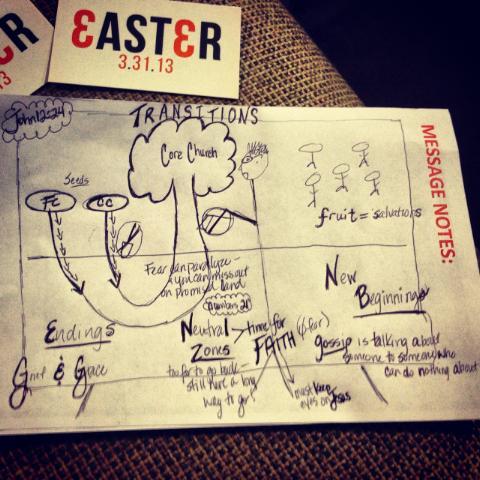 EASTER
3.31.13
ER
13
John 12:24
TRANSITIONS
MESSAGE NOTES:
Core Church
Seeds
FC
CC
fruit = salvations
Fear can paralyze -
you can miss out
on promised land.
Numbers 21
New
Beginnings
Endings
Grief & Grace
Neutral
Zones
too far to go back -
still have a long
way to go!
time for
FAITH
must keep
eyes on Jesus
gossip is talking about
someone to someone who
can do nothing about